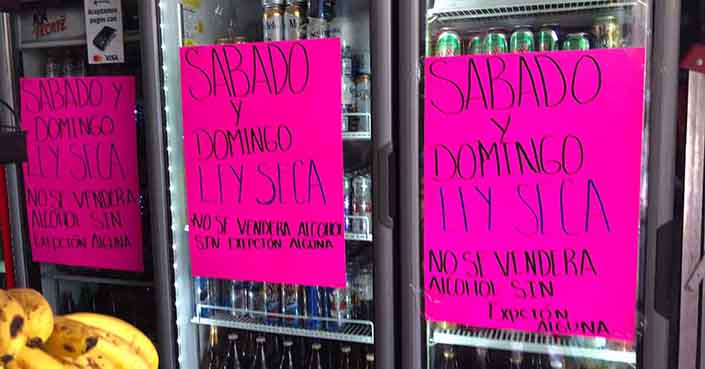 TECATE
Aceptamos
pagos con
VISA
SABADO Y
DOMINGO
LEY SECA
NO SE VENDERA
ALCOHOL SIN
EXPCIÓN ALGUNA
SABADO
Y
DOMINGO
LEY SECA
NO SE VENDERA ALCOHOL
SIN EXEPCIÓN ALGUNA
SABADO
Y
DOMINGO
LEY SECA
NO SE VENDERA
ALCOHOL SIN
EXPCIÓN
ALGUNA